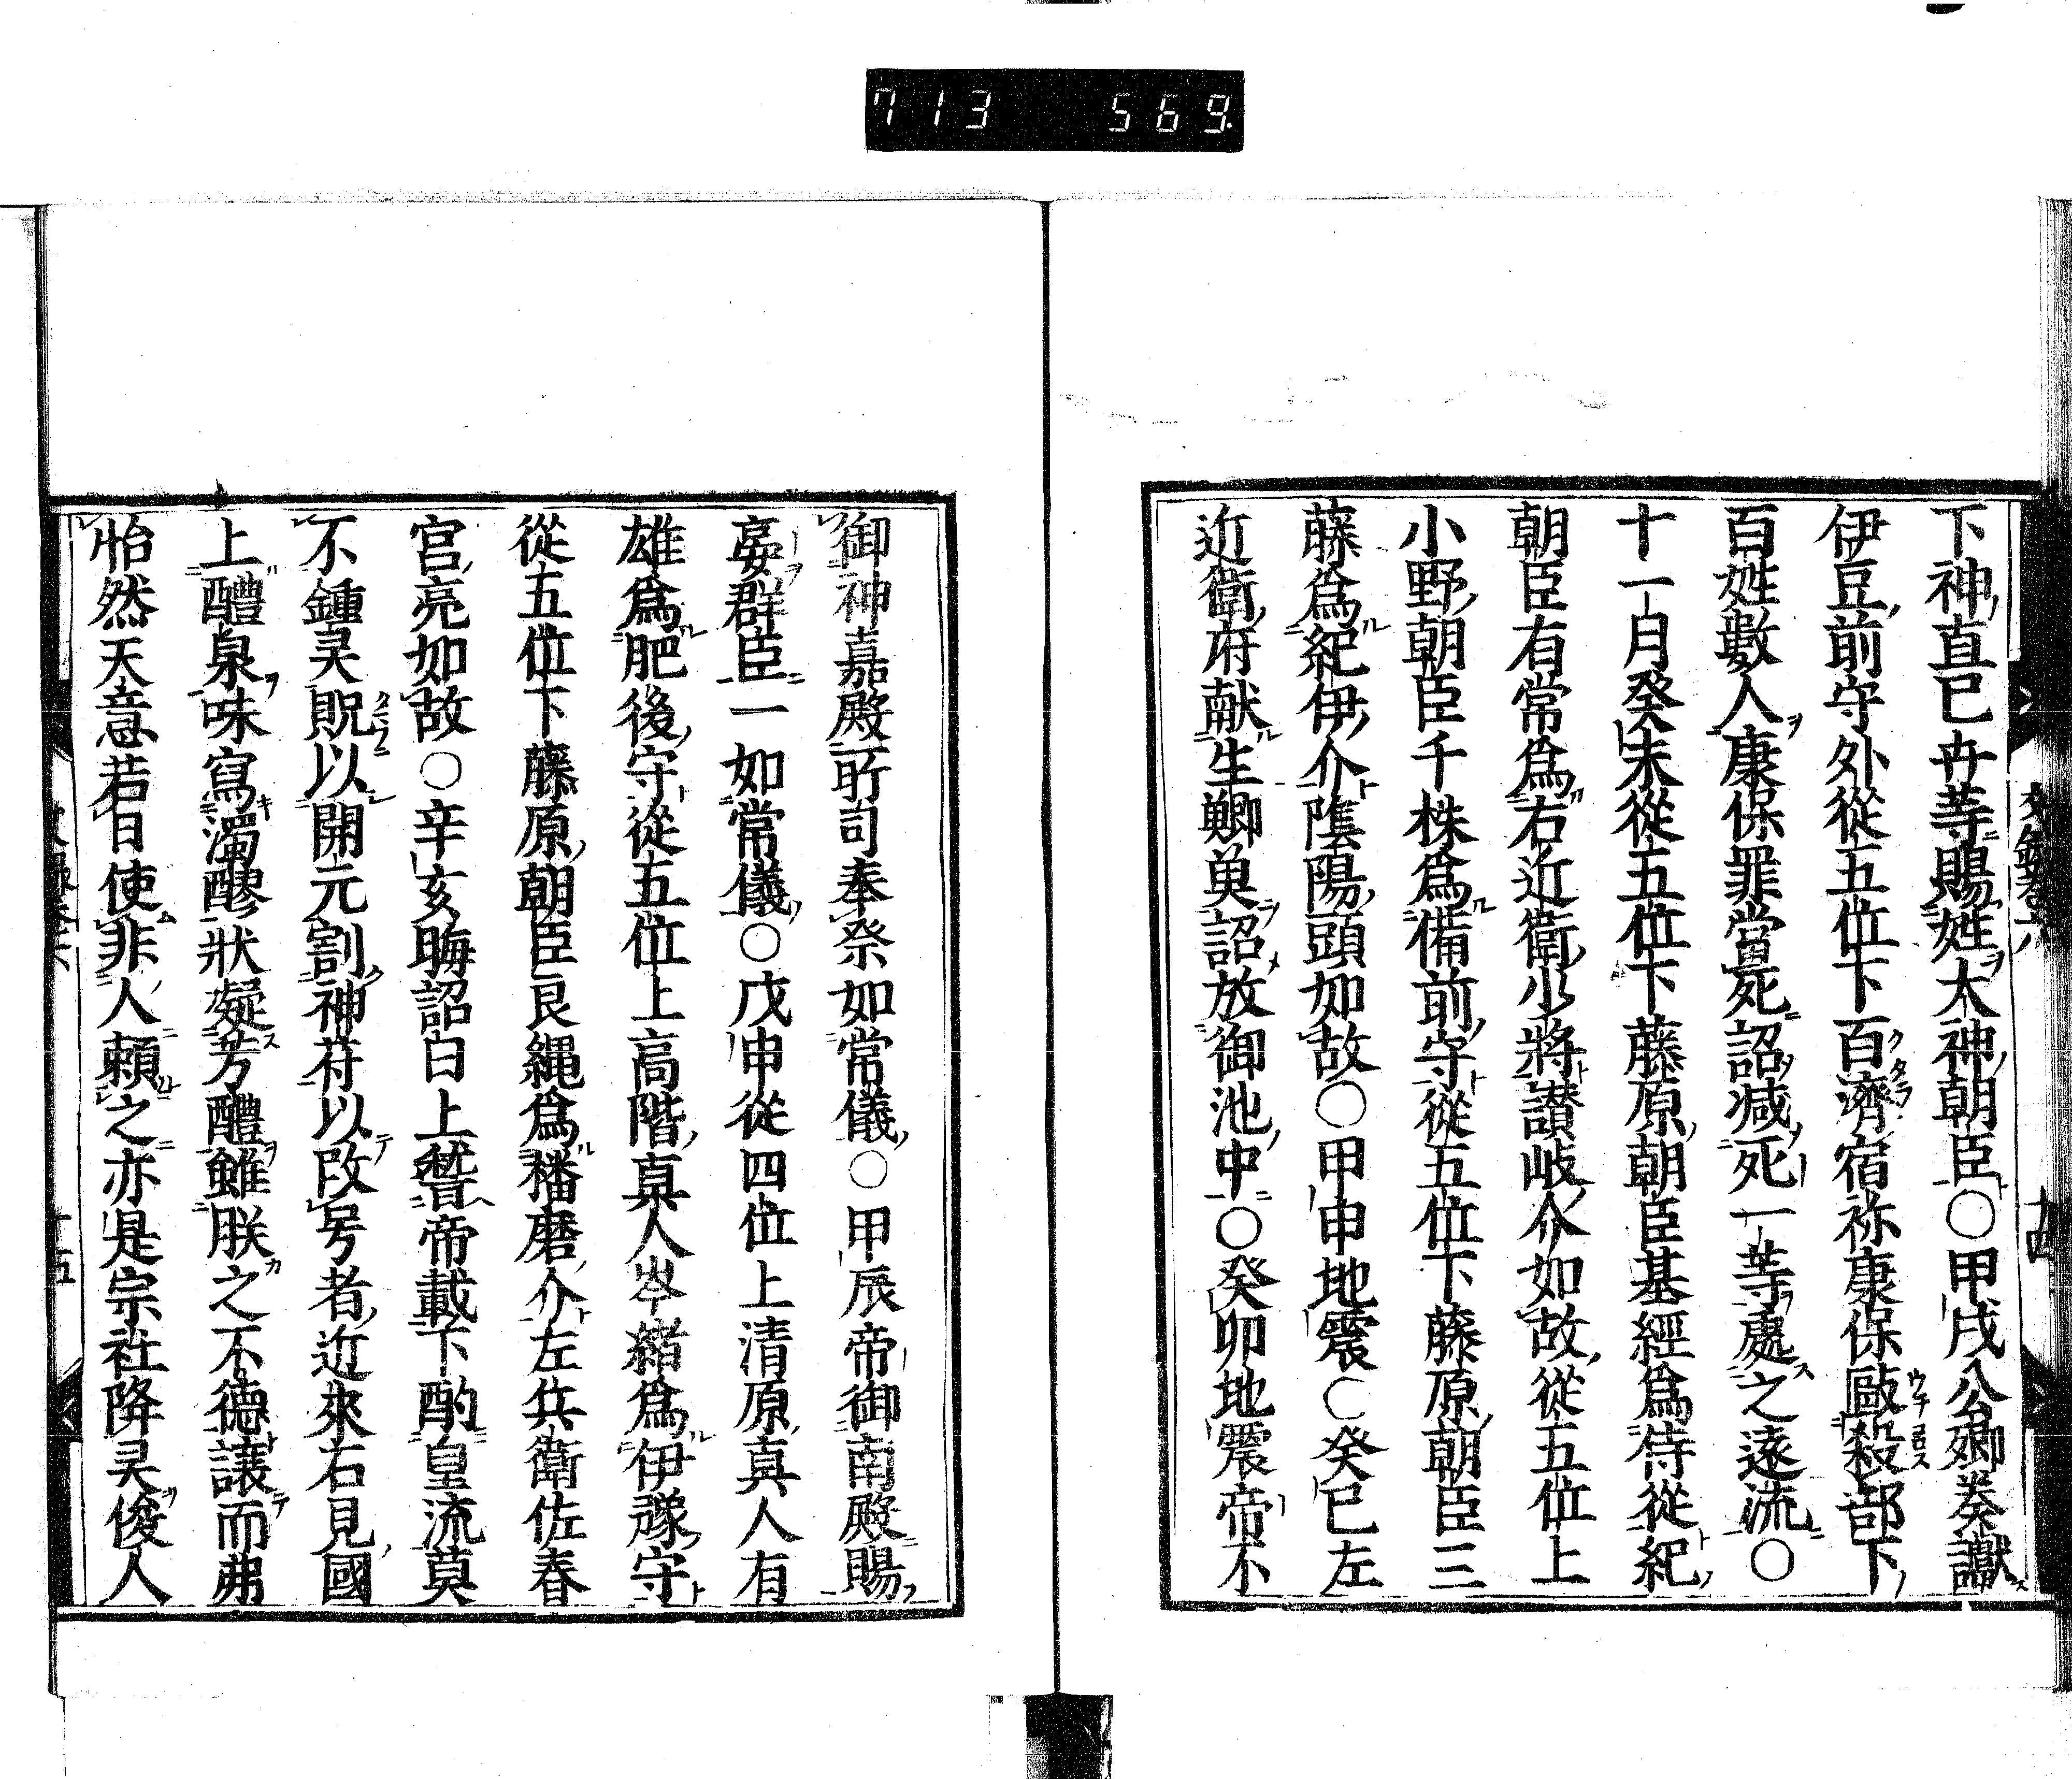 713 569
下神直已卋等賜姓大神朝臣○甲戌公卿奏讞
伊豆前守外從五位下百濟宿祢康保毆殺部下
百姓數人康保罪當死詔减死一等處之遠流○
十一月癸未從五位下藤原朝臣基經爲侍從紀
朝臣有常爲右近衛少將讃岐介如故從五位上
小野朝臣千株爲備前守從五位下藤原朝臣三
藤爲紀伊介陰陽頭如故○甲申地震○癸巳左
近衛府献生鯽魚詔放御池中○癸卯地震帝不
御神嘉殿所司奉祭如常儀○甲辰帝御南殿賜
宴群臣一如常儀○戊申從四位上清原真人有
雄爲肥後守從五位上高階真人岑緒爲伊豫守
從五位下藤原朝臣良縄爲播磨介左兵衛佐春
宮亮如故○辛亥晦詔曰上瞽帝載下酌皇流莫
不鍾灵貺以開元割神苻以改号者近來右見國
上醴泉味寫濁醪狀凝芳醴雖朕之不德讓而弗
怡然天意若曰使非人頼之亦是宗社降灵俊人